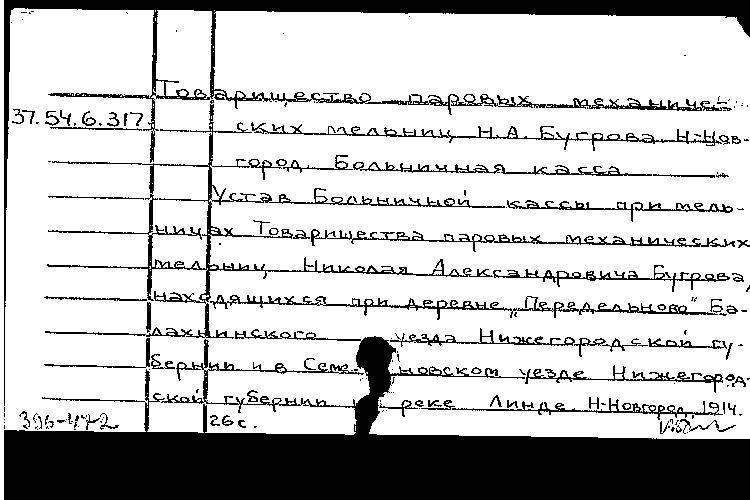 Товарищество паровых механиче-
37.54.6.317
ских мельниц Н.А. Бугрова. Н-Нов-
город. Больничная касса.
Устав Больничной кассы при мель-
ницах Товарищества паровых механических
мельниц Николая Александровича Бугрова,
находящихся при деревне „Передельново" Ба-
лахнинского уезда Нижегородской гу-
бернии и в Семе- новском уезде Нижегород-
ской губернии реке Линде. Н-Новгород, 1914.
396-472 26 с.